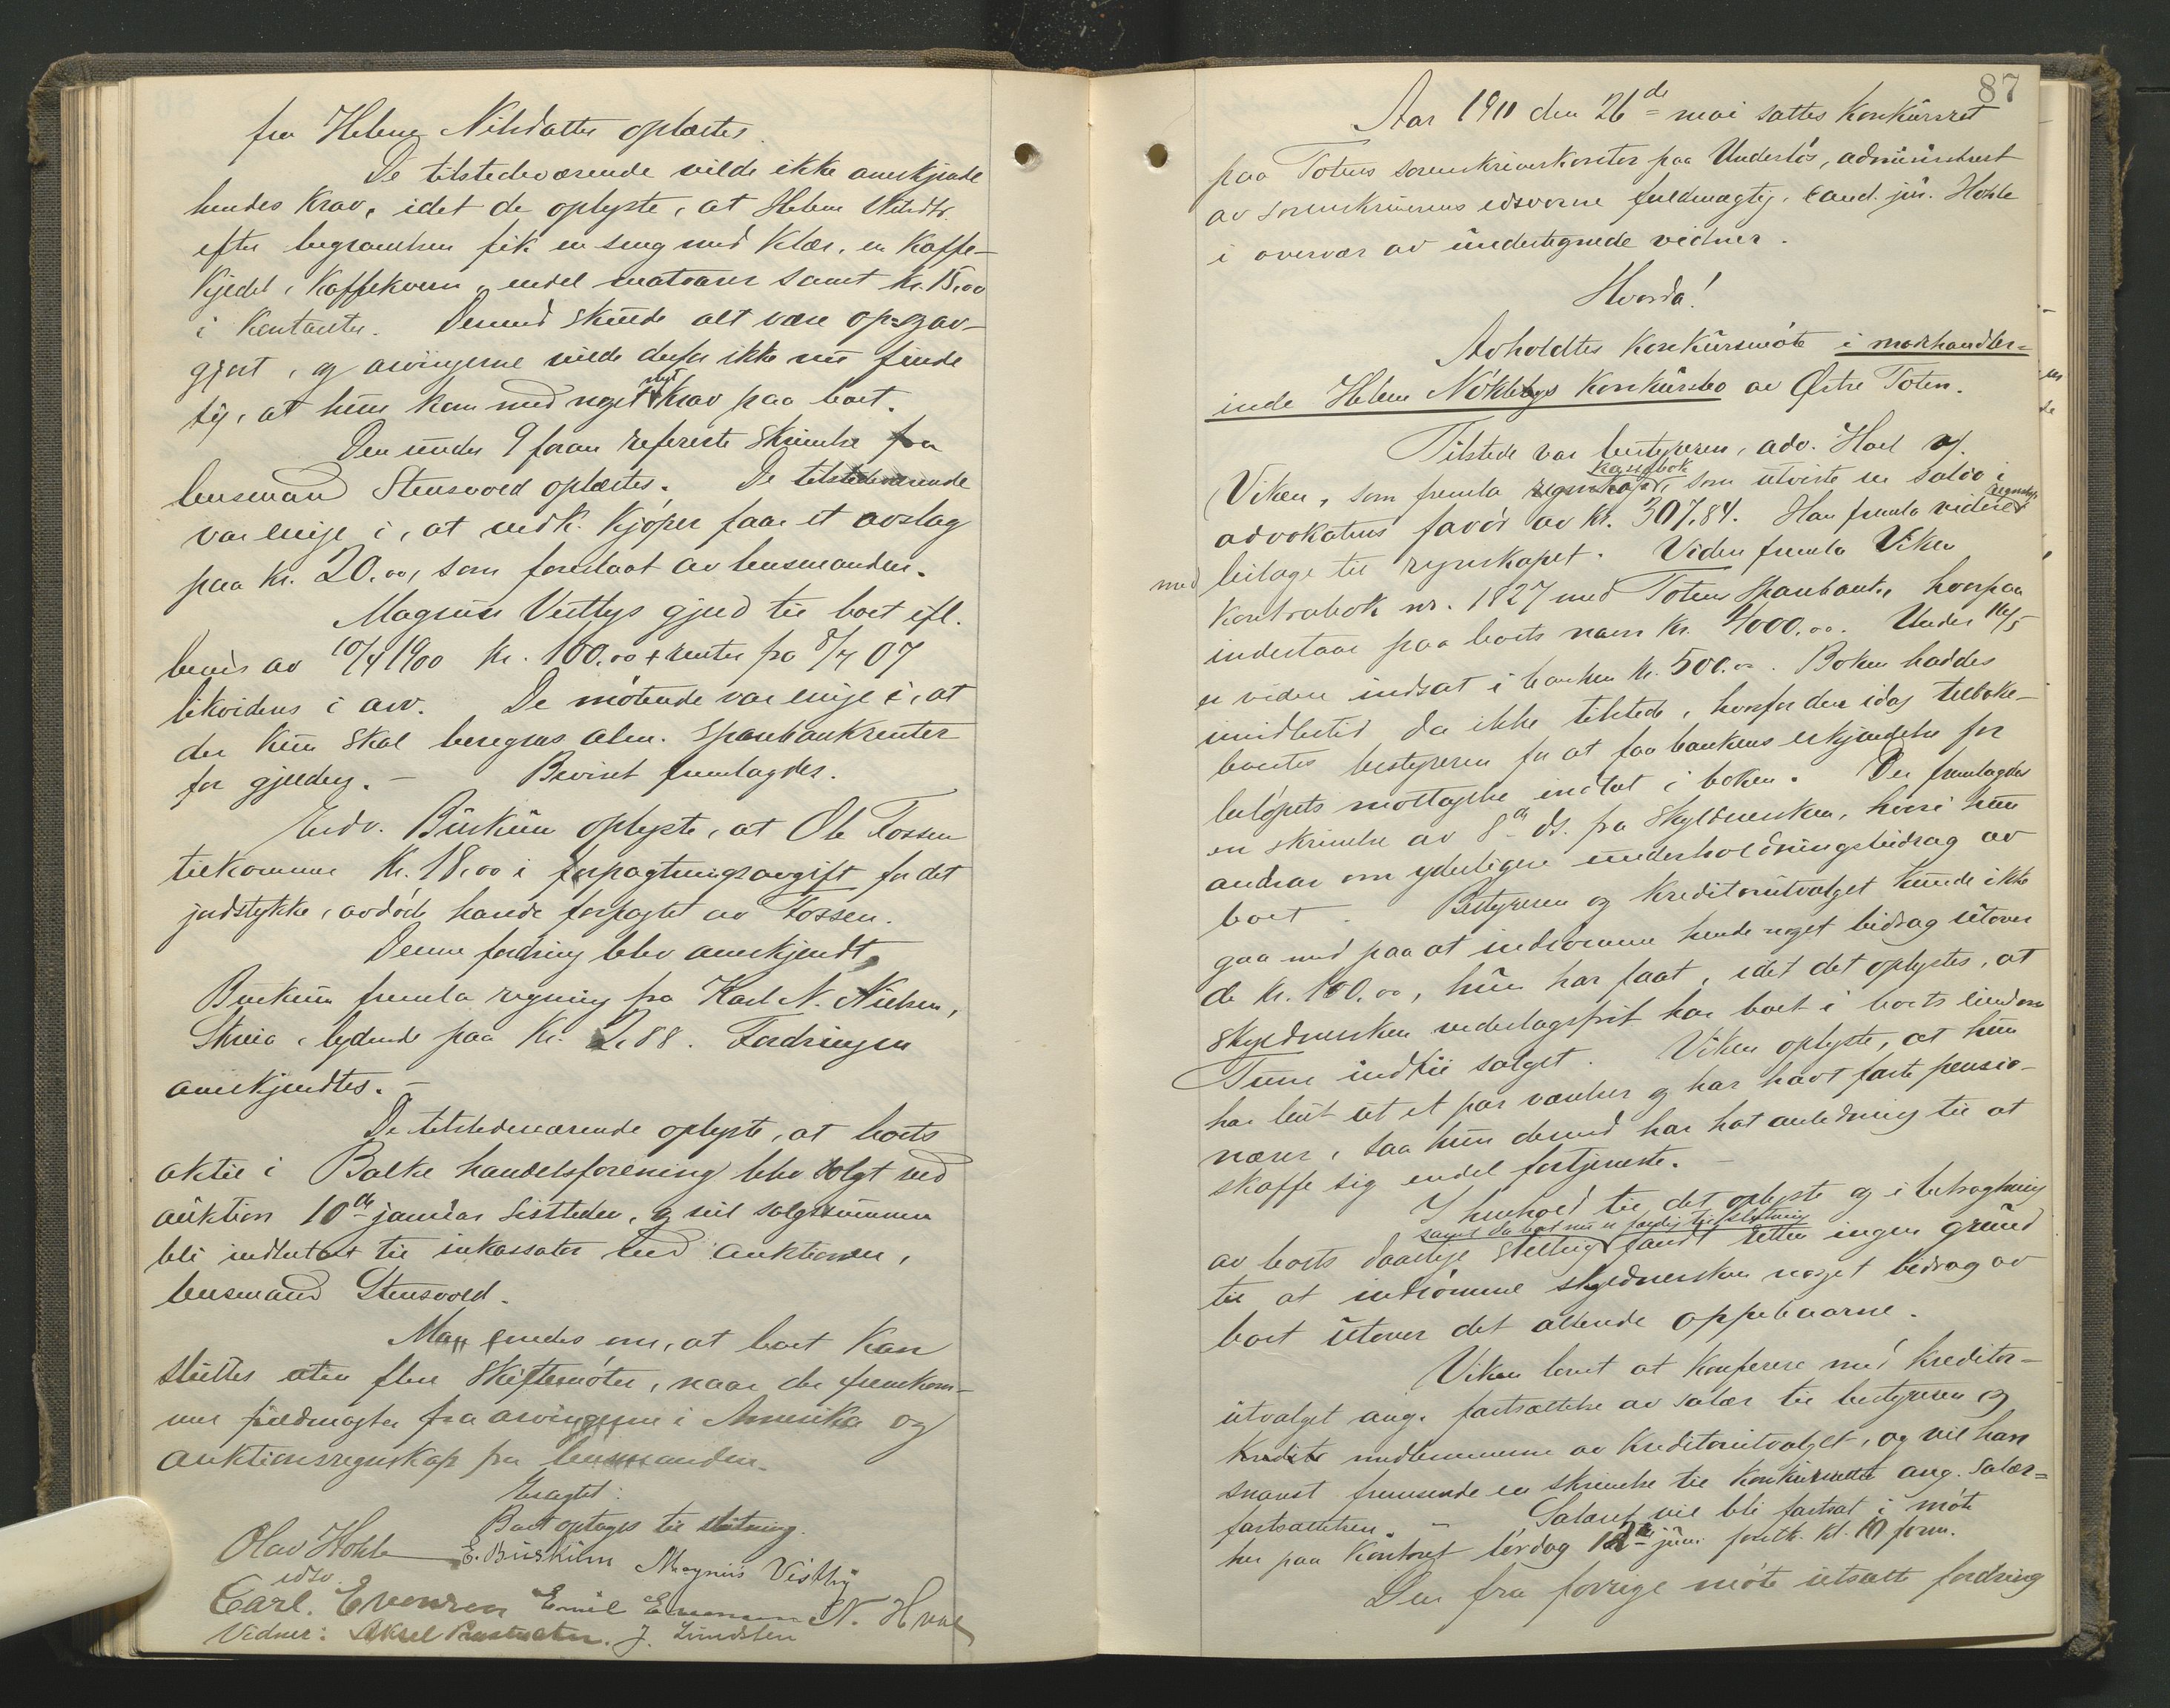 fra Helene Nilsdatter oplæstes.
De tilstedeværende vilde ikke anerkjende
hendes krav, idet de oplyste, at Helene Nilsdtr.
efter begravelsen fik en seng med klær, en kaffe-
kjedel, kaffekvern, endel matvarer samt kr. 15,00
i kontanter. Dermed skulde alt være op- og av-
gjort, og arvingerne vilde derfor ikke nu finde
sig i, at hun kom med noget nyt krav paa boet.
Den under 9 foran refererte skrivelse fra
lensmand Stensvold oplæstes. De tilstedeværende
var enige i, at vedk. kjøper faar et avslag
paa kr. 20.00, som foreslaat av lensmanden.
Magnus Vestbys gjeld til boet ifl.
bevis av 10/4 1900 kr. 100.00 + renter fra 8/7 07
likvideres i arv. De møtende var enige i, at
der kun skal beregnes alm. sparebankrenter
for gjelden. – Beviset fremlagdes.
Edv. Burkum oplyste, at Ole Fossen
tilkommer kr. 18,00 i forpagtningsavgift for det
jordstykke, avdøde havde forpagtet av Fossen.
Denne fordring blev anerkjendt.
Burkum fremla regning fra Karl N. Nielsen,
Skreia, lydende paa kr. 2,88. Fordringen
anerkjendtes. –
De tilstedeværende oplyste, at boets
aktie i Balke handelsforening blev solgt ved
auktion 10de januar sistleden, og vil salgssummen
bli indbetalt til inkassator ved auktionen,
lensmand Stensvold.
Man enedes om, at boet kan
sluttes uten flere skiftemøter, naar der fremkom-
mer fuldmagter fra arvingerne i Amerika og
auktionsregnskap fra lensmanden.
Eragtet:
Boet optages til slutning.
Olav Hohle E. Burkum Magnus Vestby
edsv.
Carl. Evensen Emil Evensen N. Hval
Vidner: Aksel J. Lundsten
87
Aar 1910 den 26de mai sattes konkursret
paa Totens sorenskriverkontor paa Underlös, administrert
av sorenskriverens edsvorne fuldmægtig, cand. jur. Hohle
i overvær av undertegnede vidner.
Hvorda!
Avholdtes konkursmøte i modehandler-
inde Helene Nøklebys konkursbo av Østre Toten.
Tilstede var bestyreren, adv. Hoel v/
Viken, som fremla kassabok, som utviste en saldo i
advokatens favør av kr. 307.84. Han fremla videre regnskap
med bilage til regnskapet. Viden fremla Viken
kontrabok nr. 1827 med Totens Sparebank, hvorpaa
indestaar paa boets navn kr. 4000.00. Under 10/5
er videre indsat i banken kr. 500.00. Boken haddes
imidlertid da ikke tilstede, hvorfor den idag tilbake-
leveres bestyreren for at faa bankens erkjendelse for
beløpets mottagelse indtat i boken. Der fremlagdes
en skrivelse av 8de ds. fra skyldnersken, hvori hun
andrar om yderligere underholdningsbidrag av
boet. Bestyreren og kreditorutvalget kunde ikke
gaa med paa at indrømme hende noget bidrag utover
de kr. 100.00, hun har faat, idet det oplystes, at
skyldnersken vederlagsfrit har boet i boets eiendom
Tune indtil salget. Viken oplyste, at hun
har leiet ut et par værelser og har havt faste pensio-
nærer, saa hun derved har hat anledning til at
skaffe sig endel fortjeneste. –
I henhold til det oplyste og i betragtning
samt da boet nu er færdig til slutning
av boets daarlige stilling fandt retten ingen grund
til at indrømme skyldnersken noget bidrag av
boet utover det allerede oppebaarne.
Viken lovet at konferere med kreditor-
utvalget ang. fastsættelse av salær til bestyreren og
medlemmerne av kreditorutvalget, og vil han
snarest fremsende en skrivelse til konkursretten ang. salær-
fastsættelsen. – Salæret vil bli fastsat i møte
her paa kontoret lørdag juni førstk. kl. 10 form.
Den fra forrige møte utsatte fordring